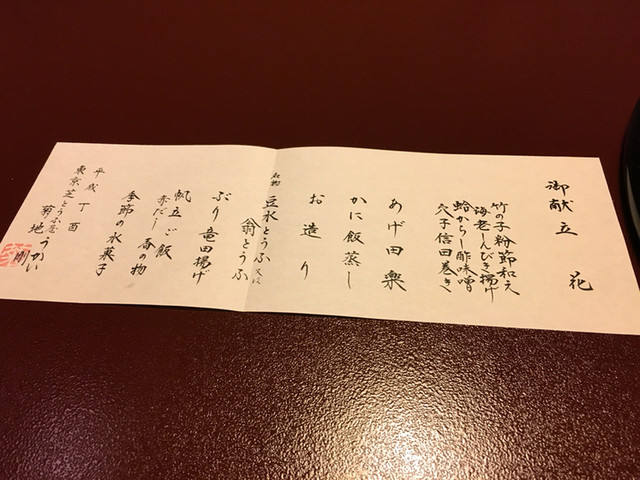 御献立 花
竹の子粉節和え
海老しんびき揚げ
蛤からし酢味噌
穴子信田巻き
あげ田楽
かに飯蒸し
お造り
名物 豆水とうふ 又は
翁とうふ
ぶり竜田揚げ
帆立ご飯
赤だし 香の物
季節の水菓子
平成丁酉
東京芝とうふ屋うかい
菊地 剛